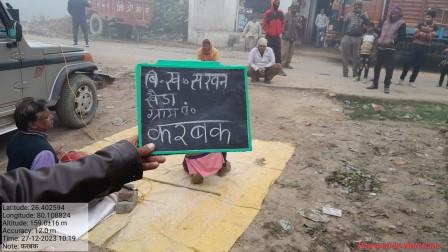 वि॰ख॰ सरवन
खेड़ा
ग्राम पं॰
करबक
Latitude: 26.402594
Longitude: 80.108824
Altitude: 159.0±16 m
Accuracy: 12.0 m
Time: 27-12-2023 10:19
Note: करबक